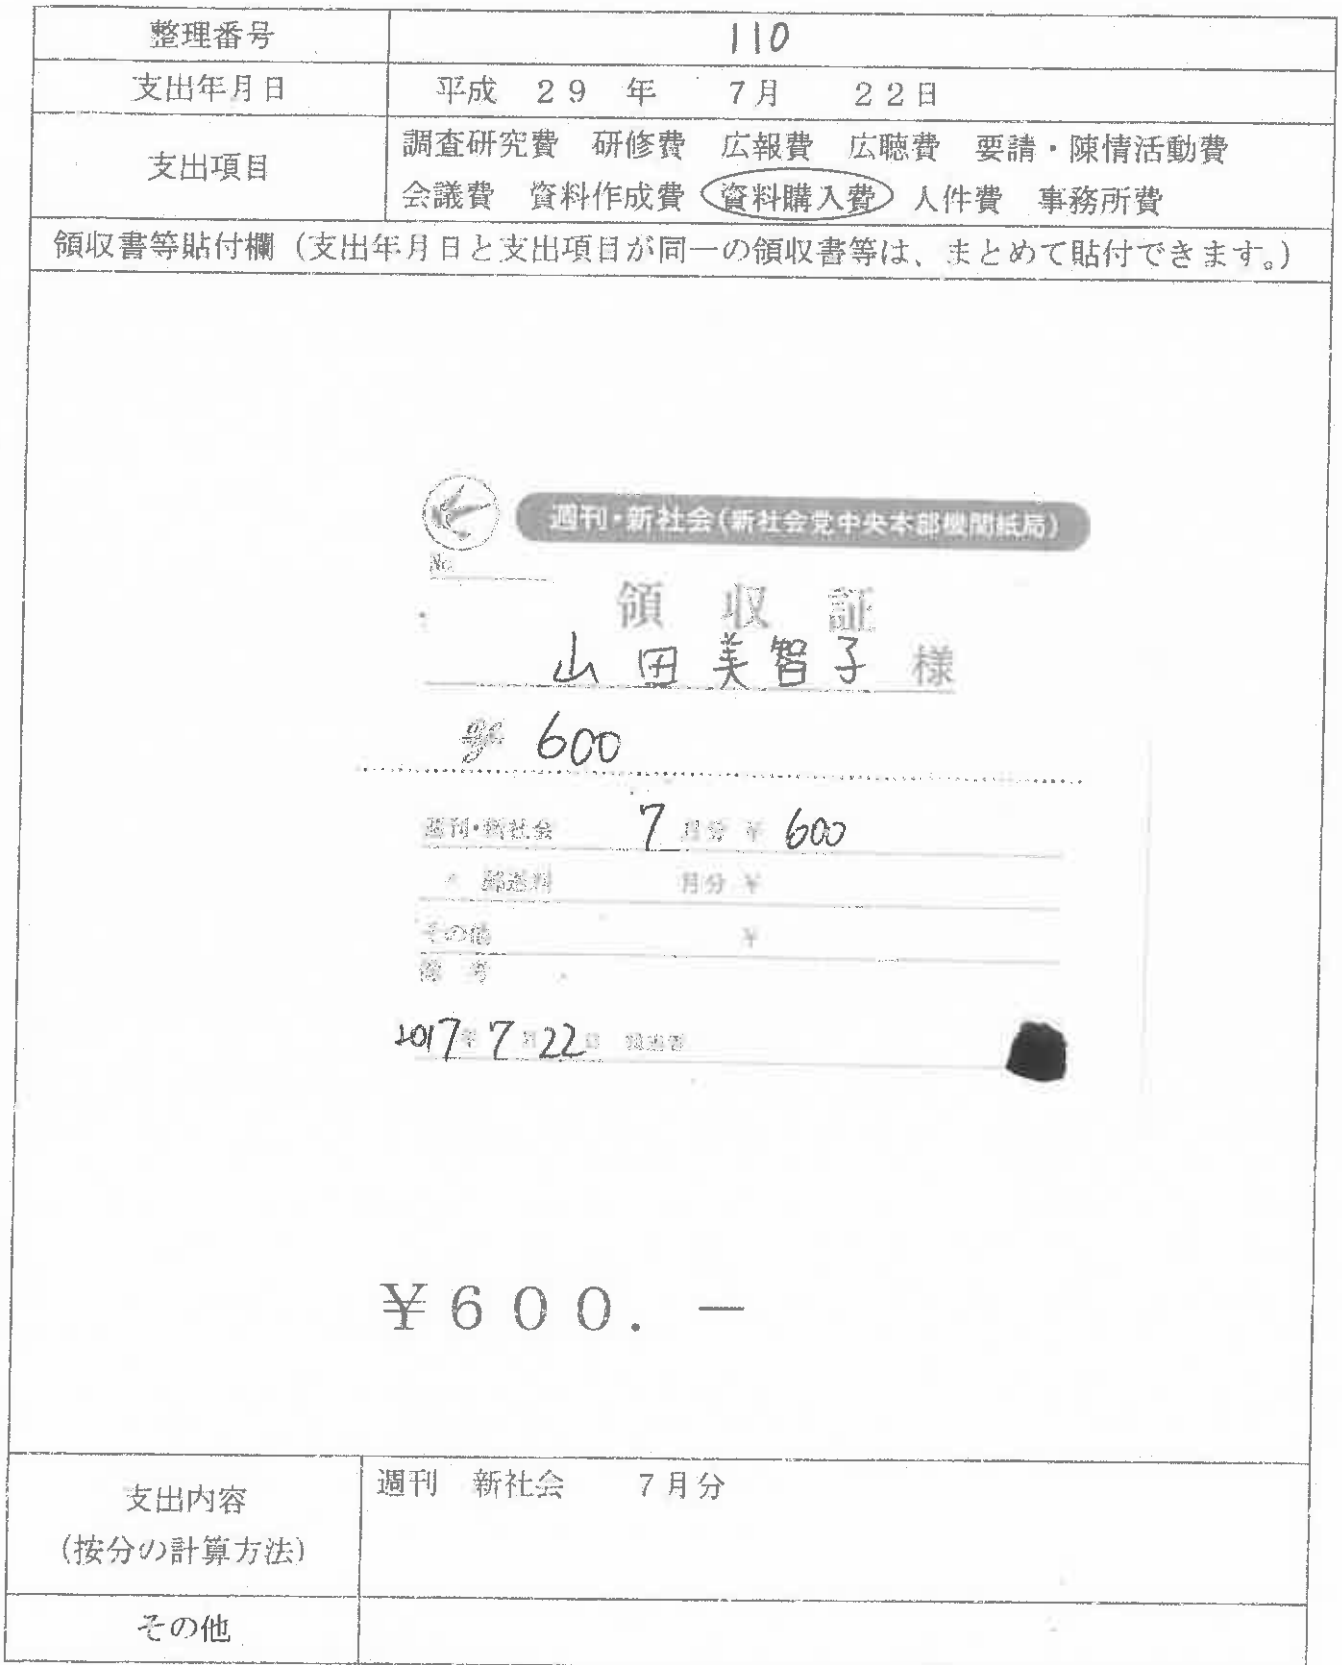 整理番号 110
支出年月日 平成 29 年 7月 22日
支出項目
調査研究費 研修費 広報費 広聴費 要請・陳情活動費
会議費 資料作成費 資料購入費 人件費 事務所費
領収書等貼付欄（支出年月日と支出項目が同一の領収書等は、まとめて貼付できます。）
週刊・新社会(新社会党中央本部機関紙局)
No.
領 収 証
山田美智子 様
600
週刊・新社会 7 月分 ¥ 600
〃 郵送料 月分 ¥
その他 ¥
備 考
2017年 7月 22日
¥600.－
支出内容
(按分の計算方法)
週刊 新社会 7月分
その他